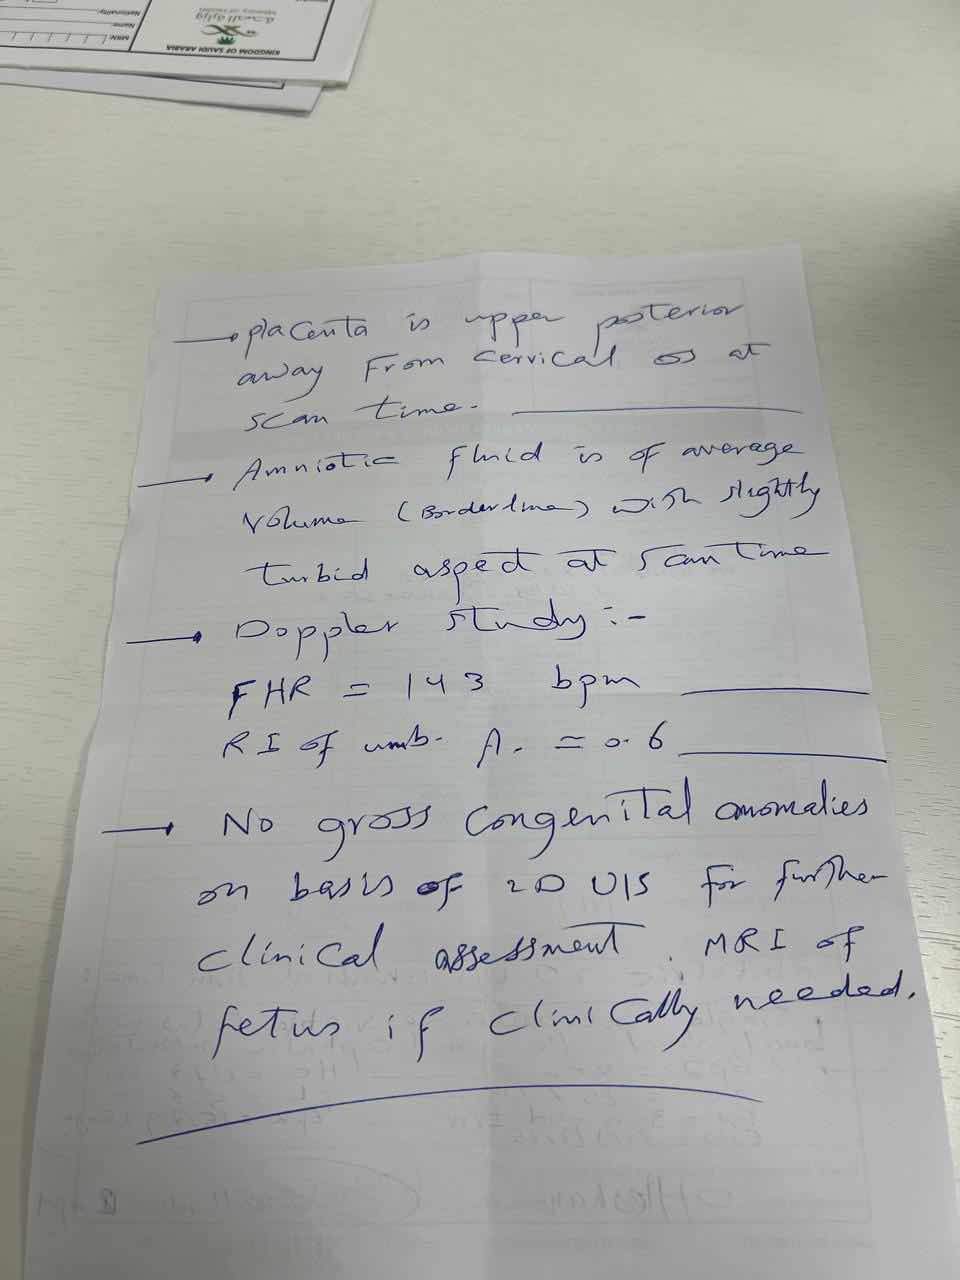 KINGDOM OF SAUDI ARABIA
وزارة الصحة
Ministry of Health
MRN:
Name:
Nationality:
→ placenta is upper posterior
away From cervical os at
scan time.
→ Amniotic fluid is of average
volume (Borderline) with slightly
turbid aspect at scan time
→ Doppler study :-
FHR = 143 bpm
RI of umb. A. = 0.6
→ No gross congenital anomalies
on basis of 2D U/S for further
clinical assessment. MRI of
fetus if clinically needed.